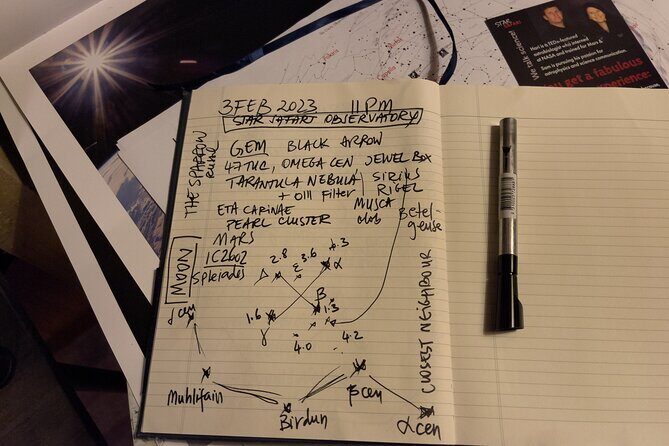 STAR SAFARI
We talk science!
Hari is a TEDx-featured astrobiologist who interned
at NASA and trained for Mars &
Sam is pursuing his passion for
astrophysics and science communication.
get a fabulous
experience:
3 FEB 2023 11 PM
STAR SAFARI OBSERVATORY
THE SPARROW
GEM BLACK ARROW
47 TUC, OMEGA CEN JEWEL BOX
TARANTULA NEBULA SIRIUS
+ OIII Filter RIGEL
MUSCA
ETA CARINAE
PEARL CLUSTER
Betel-
geuse
MARS
IC2602
Spleiades
MOON
4.3
3.6
2.8
ε
α
Δ
β
1.3
1.6
γ
4.2
4.0
CLOSEST NEIGHBOUR
Muhlifain
Birdun
βcen
αcen